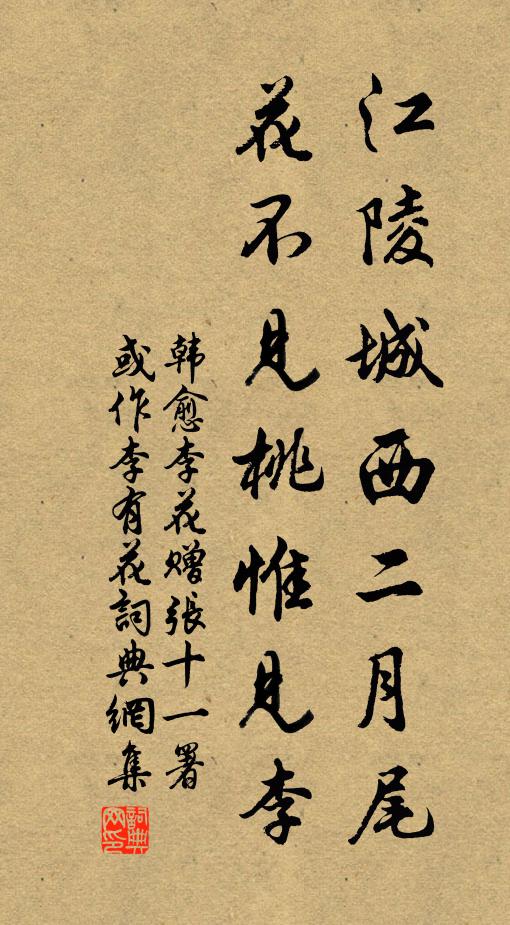 江陵城西二月尾
花不見桃惟見李
韩愈李花赠張十一署
或作李有花詞典網集
詞典网印